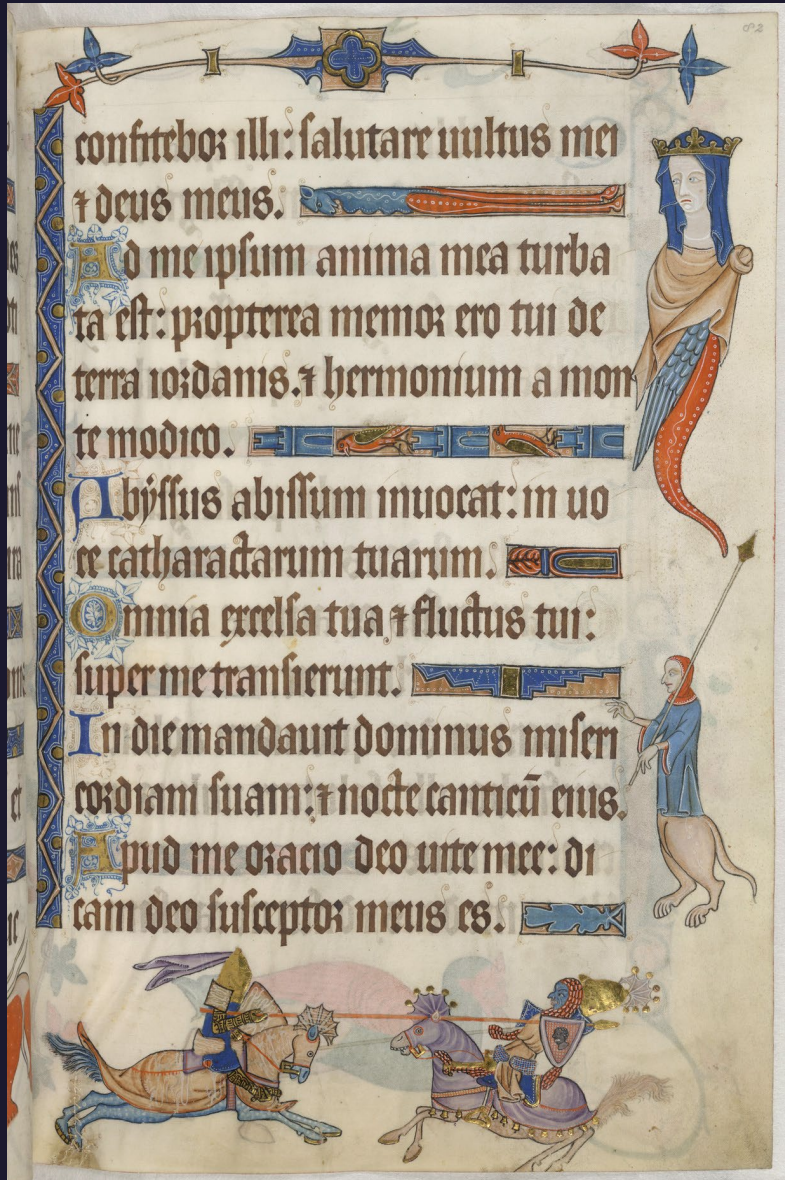 82
confitebor illi: salutare uultus mei
⁊ deus meus.
Ad me ipsum anima mea turba
ta est: propterea memor ero tui de
terra iordanis. ⁊ hermonium a mon
te modico.
Abyssus abissum inuocat: in uo
ce catharactarum tuarum.
Omnia excelsa tua ⁊ fluctus tui:
super me transierunt.
In die mandauit dominus miseri
cordiam suam: ⁊ nocte canticū eius.
Apud me oracio deo uite mee: di
cam deo susceptor meus es.